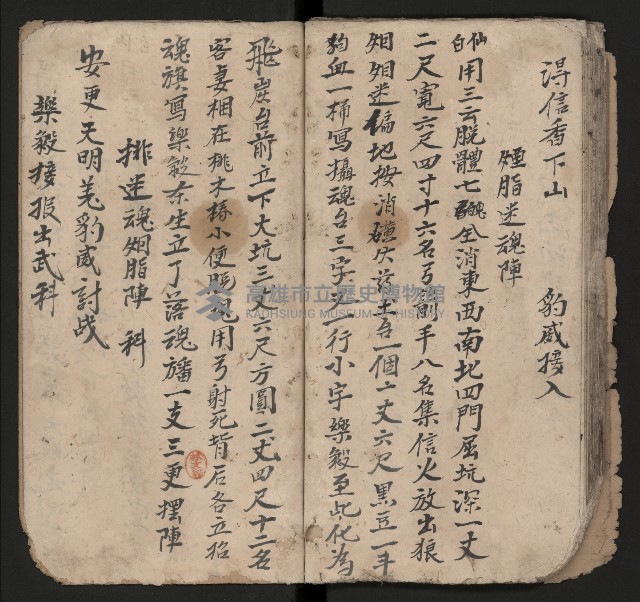 淂信香下山　豹威接入
烟脂迷魂陣
仙白用三云脫體七醜全消東西南北四門屈坑深一丈
二尺寬六尺四寸十六名弓箭手八名集信火放出狼
烟烟迷偏地按消磺灾前土台一個一丈六尺黑豆一斗
狗血一桶写攝魂台三字上一行小字樂毅至此化為
飛炭台前立下大坑三丈六尺方圓二丈四尺十二名
客妻梱在桃木樁小便魄用弓射死背后各立招
魂旗写樂毅本生立丁落魂旛一支三更擺陣
排迷魂烟脂陣　科
安更天明羌豹威討战
樂毅接报出武科
高雄市立歷史博物館
KAOHSIUNG MUSEUM OF HISTORY